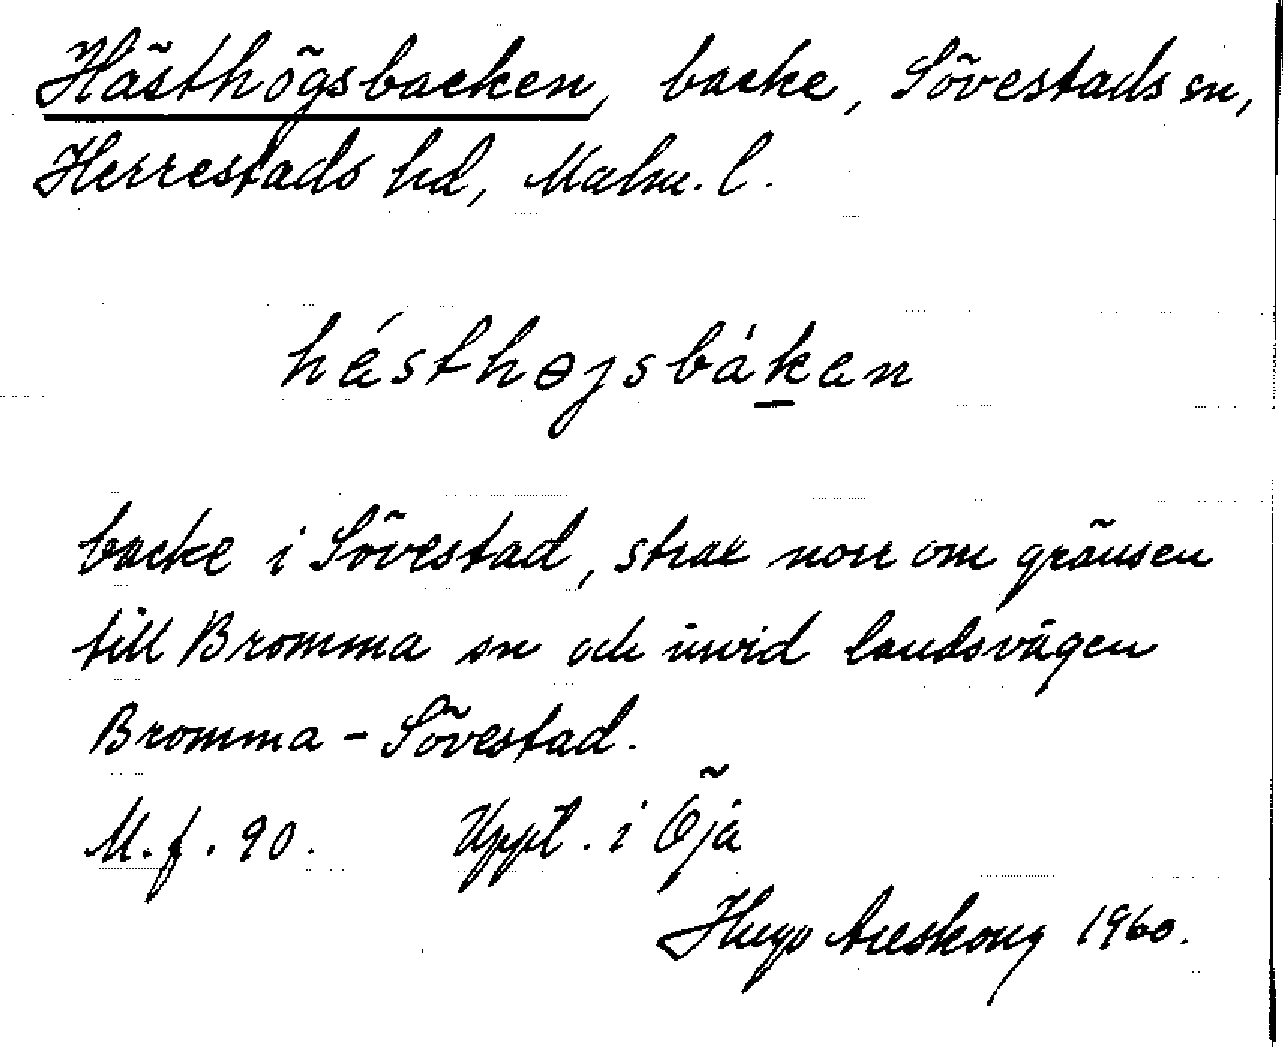 Hästhögsbacken, backe, Sövestads sn,
Herrestads hd, Malm. l.
hásthøjsbákan
backe i Sövestad, strax norr om gränsen
till Bromma sn och invid landsvägen
Bromma - Sövestad.
M. f. 90. Uppt. i Öja
Hugo Areskoug 1960.